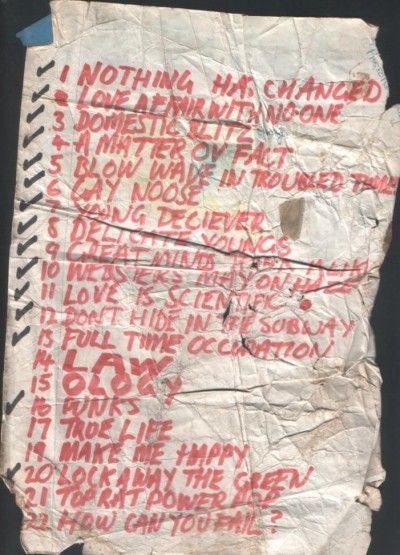 1 NOTHING HAS CHANGED
2 LOVE AFFAIR WITH NO-ONE
3 DOMESTIC BLITZ
4 A MATTER OV FACT
5 BLOW WAVE IN TROUBLED TIMES
6 GAY NOOSE
7 YOUNG DECIEVER
8 DELICATE YOUNGS
9 GREAT MINDS
10 WEBSTERS MAY ON
11 LOVE IS SCIENTIFIC
12 DON'T HIDE IN THE SUBWAY
13 FULL TIME OCCUPATION
14 LAW
15 OLOGY
16 FUNKS
17 TRUE LIFE
19 MAKE ME HAPPY
20 LOCK AWAY THE GREEN
21 TOP RAT POWER
22 HOW CAN YOU FAIL?